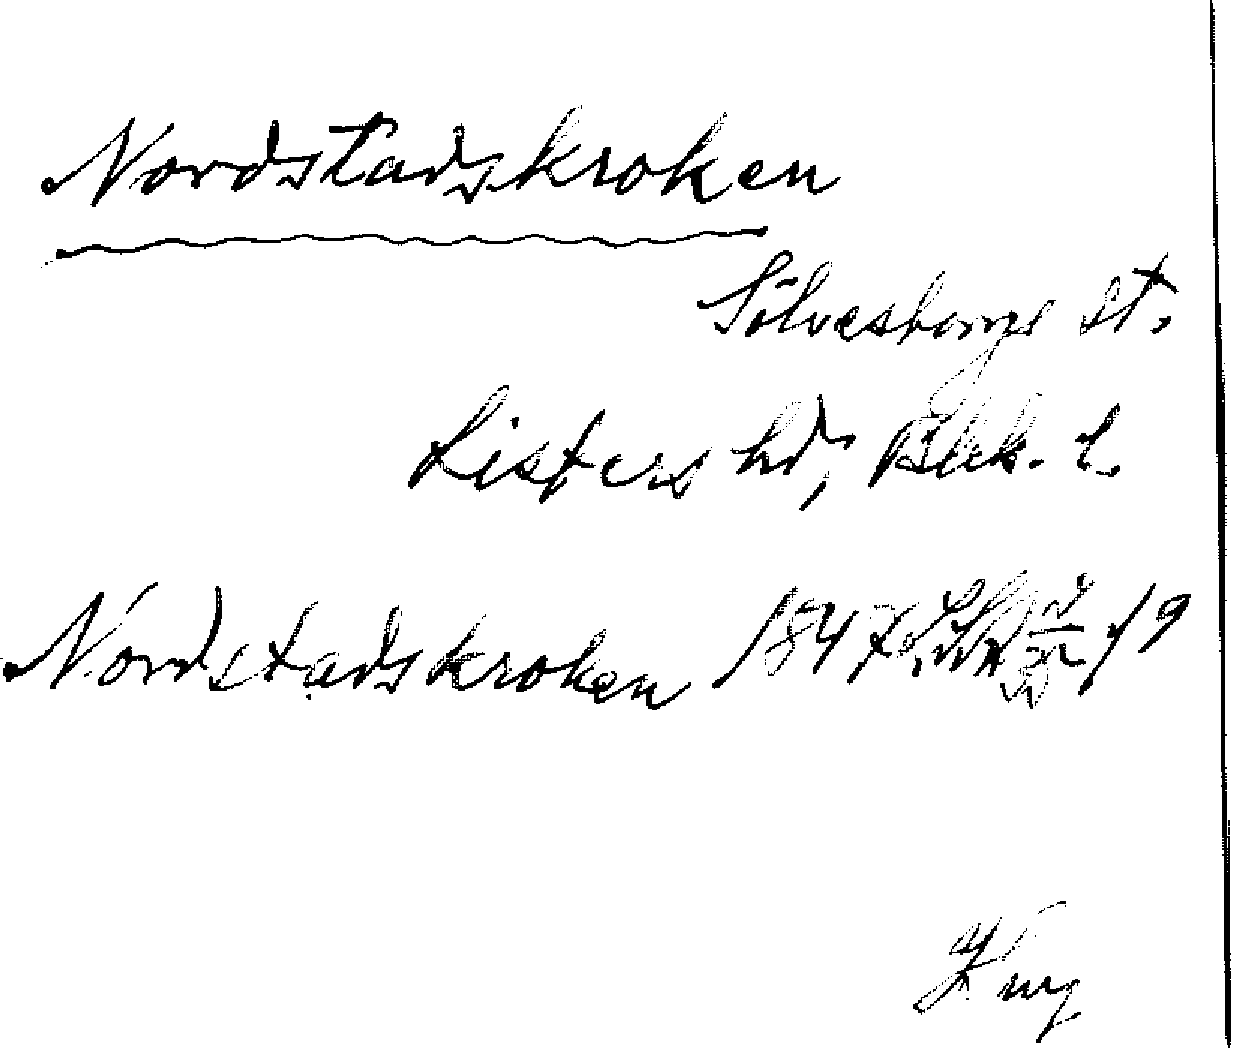 Nordstadskroken
Sölvesborgs st.
Listers hd, Blek. l.
Nordstadskroken 1847